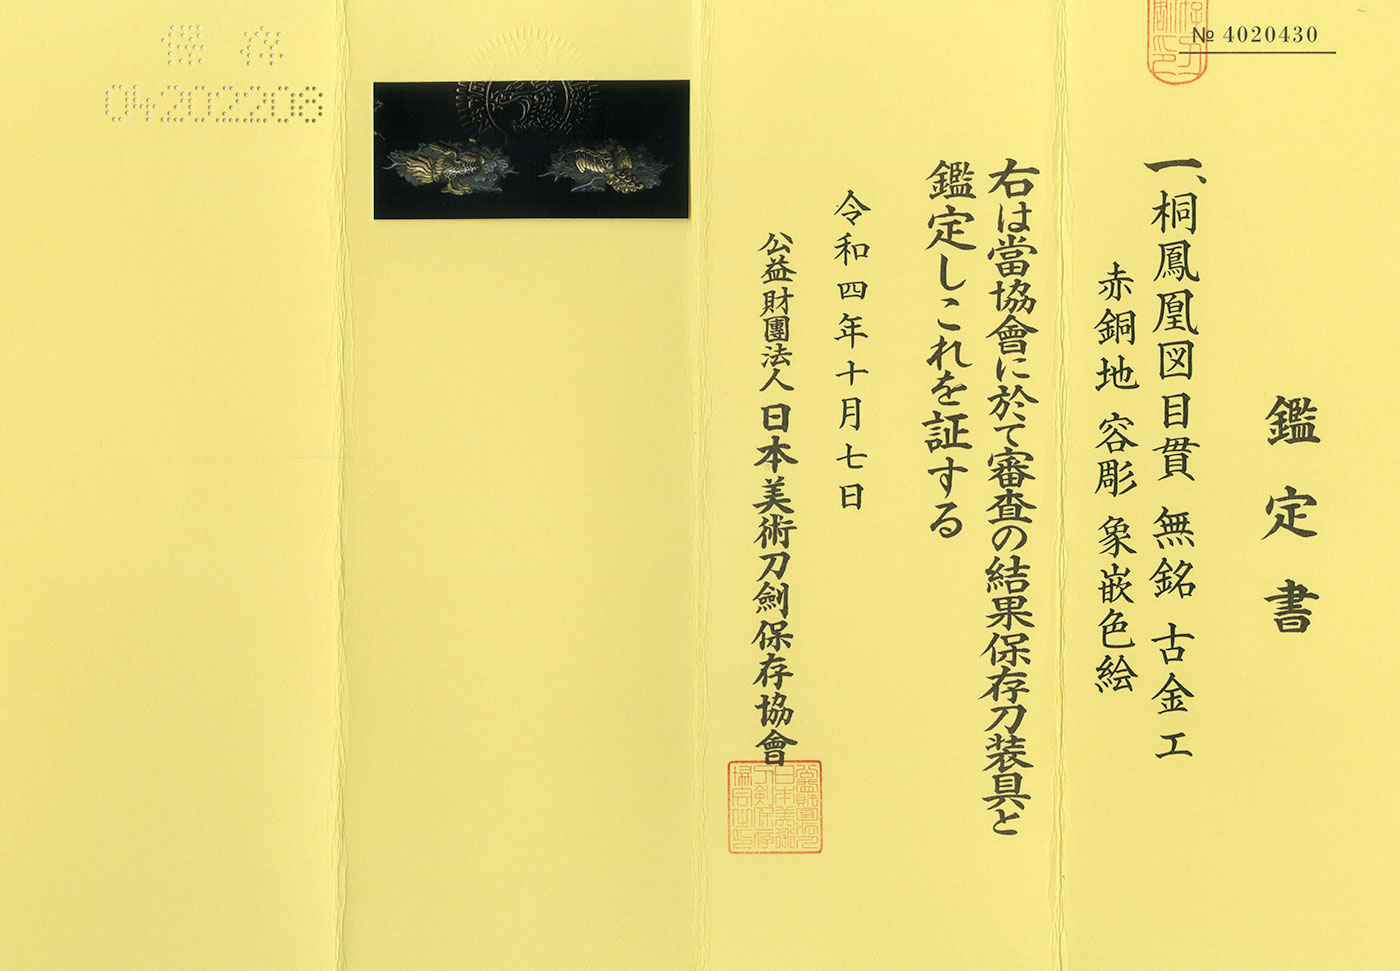 № 4020430
鑑定書
一、桐鳳凰図目貫 無銘 古金工
赤銅地 容彫 象嵌色絵
右は當協會に於て審査の結果保存刀装具と
鑑定しこれを証する
令和四年十月七日
公益財團法人 日本美術刀劍保存協會
保存
04202208